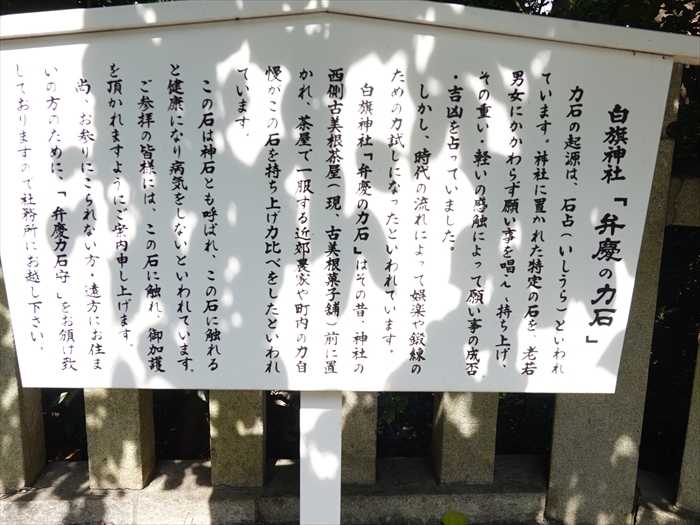 白旗神社「弁慶の力石」
力石の起源は、石占(いしうら)といわれ
ています。神社に置かれた特定の石を、老若
男女にかかわらず願い事を唱へ、持ち上げ、
その重い・軽いの感触によって願い事の成否
・吉凶を占っていました。
しかし、時代の流れによって娯楽や鍛練の
ための力試しになったといわれています。
白旗神社「弁慶の力石」はその昔、神社の
西側古美根茶屋(現、古美根菓子舗)前に置
かれ、茶屋で一服する近郊農家や町内の力自
慢がこの石を持ち上げ力比べをしたといわれ
ています。
この石は神石とも呼ばれ、この石に触れる
と健康になり病気をしないといわれています。
ご参拝の皆様には、この石に触れ、御加護
を頂かれますようにご案内申し上げます。
尚、お参りにこられない方・遠方にお住ま
いの方のために、「弁慶力石守」をお頒け致
しておりますので社務所にお越し下さい。